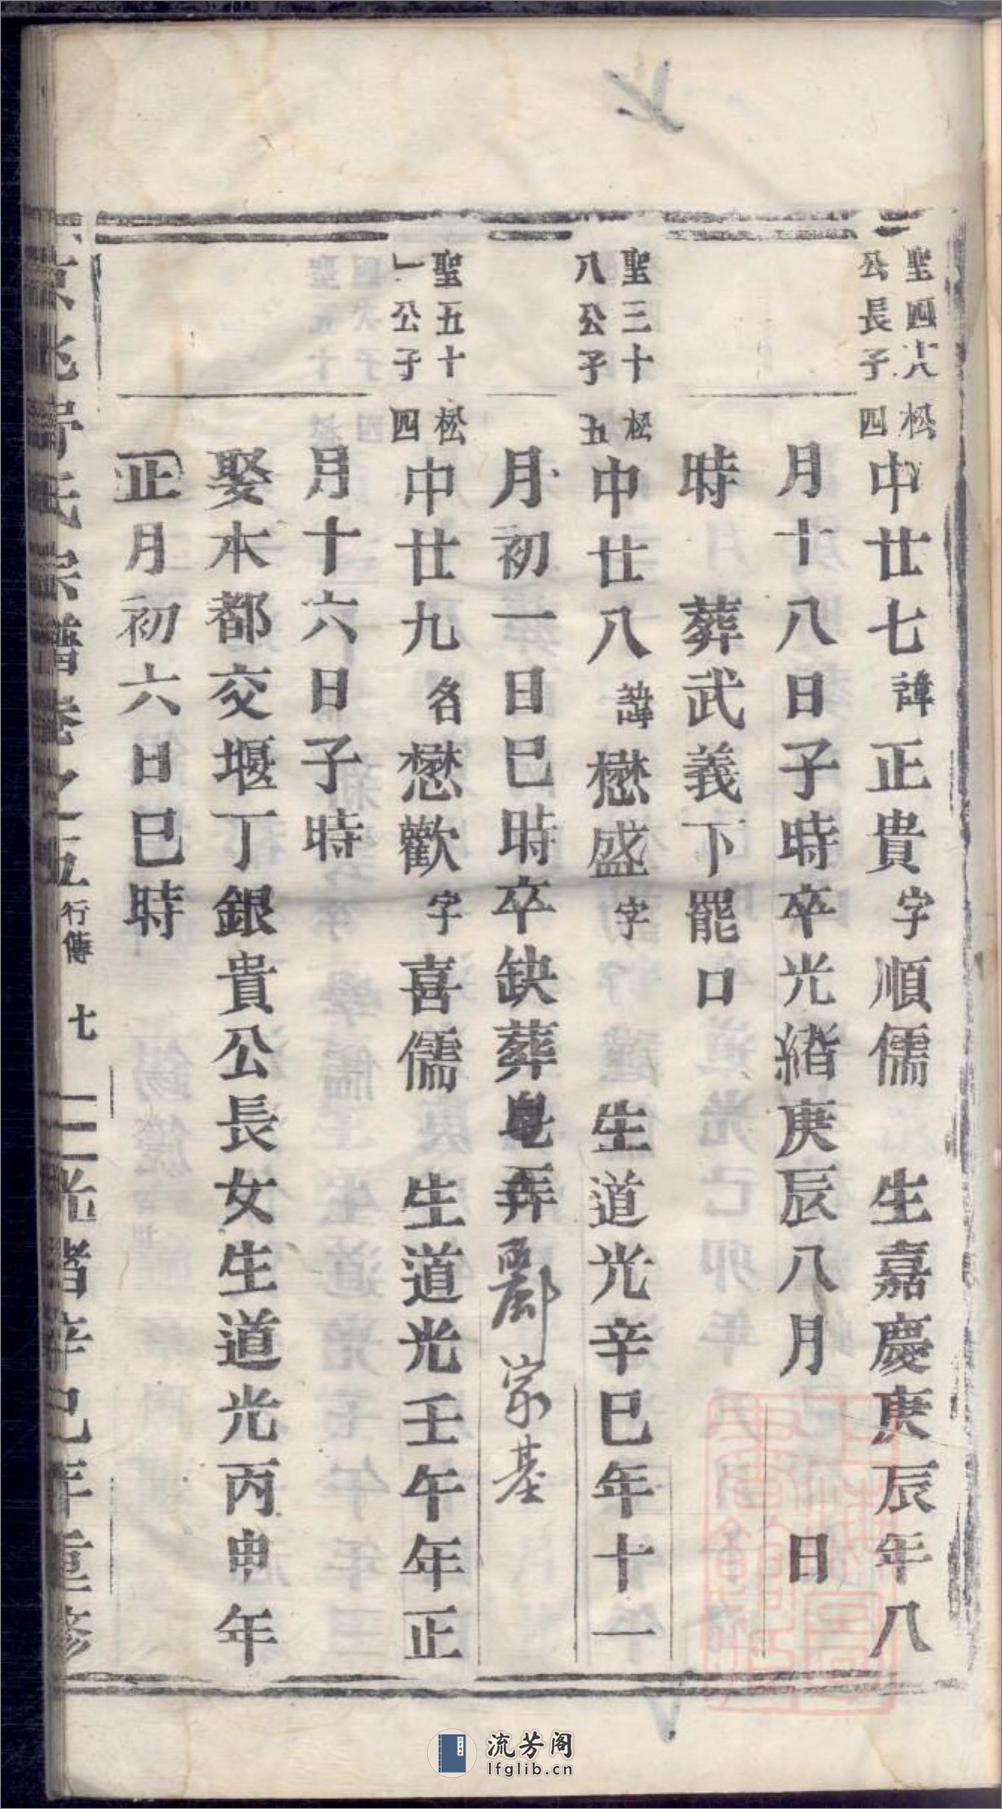 聖四十八
公長子
松四
中廿七諱正貴字順儒 生嘉慶庚辰年八
月十八日子時卒光緒庚辰八月 日
時 葬武義下罷口
聖三十
八公子
松五
中廿八諱懋盛字 生道光辛巳年十一
月初一日巳時卒缺葬皂弄鄺家基
聖五十
一公子
松四
中廿九名懋歡字喜儒 生道光壬午年正
月十六日子時
娶木都交堰丁銀貴公長女生道光丙申年
正月初六日巳時
氏宗譜卷之五 行傳 七 光緒辛巳年重修
流芳阁
lfglib.cn